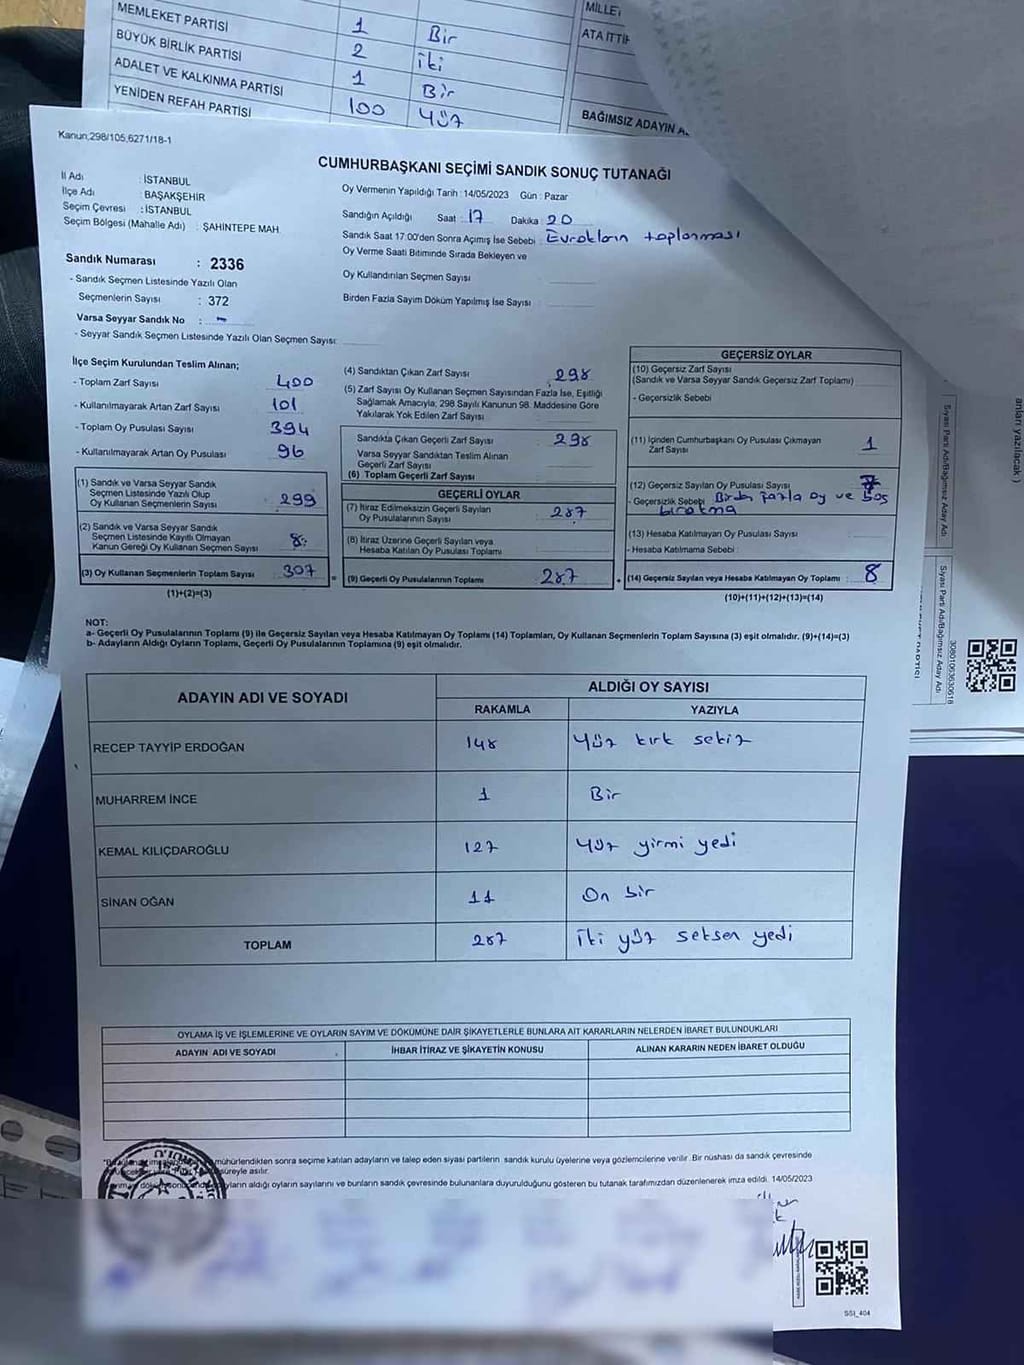 MEMLEKET PARTİSİ 1 Bir
BÜYÜK BİRLİK PARTİSİ 2 İki
ADALET VE KALKINMA PARTİSİ 1 Bir
YENİDEN REFAH PARTİSİ 100 Yüz
MİLLE
ATA İTTİF
BAĞIMSIZ ADAYIN A
Kanun;298/105,6271/18-1
CUMHURBAŞKANI SEÇİMİ SANDIK SONUÇ TUTANAĞI
İl Adı : İSTANBUL
İlçe Adı : BAŞAKŞEHİR
Seçim Çevresi : İSTANBUL
Seçim Bölgesi (Mahalle Adı) : ŞAHİNTEPE MAH.
Oy Vermenin Yapıldığı Tarih : 14/05/2023 Gün : Pazar
Sandığın Açıldığı Saat : 17 Dakika : 20
Sandık Saat 17:00'den Sonra Açımış İse Sebebi : Evrakların toplanması
Oy Verme Saati Bitiminde Sırada Bekleyen ve
Oy Kullandırılan Seçmen Sayısı
Birden Fazla Sayım Döküm Yapılmış İse Sayısı
Sandık Numarası : 2336
- Sandık Seçmen Listesinde Yazılı Olan
Seçmenlerin Sayısı : 372
Varsa Seyyar Sandık No : -
- Seyyar Sandık Seçmen Listesinde Yazılı Olan Seçmen Sayısı:
İlçe Seçim Kurulundan Teslim Alınan;
- Toplam Zarf Sayısı 400
- Kullanılmayarak Artan Zarf Sayısı 101
- Toplam Oy Pusulası Sayısı 394
- Kullanılmayarak Artan Oy Pusulası 96
(1) Sandık ve Varsa Seyyar Sandık
Seçmen Listesinde Yazılı Olup
Oy Kullanan Seçmenlerin Sayısı 299
(2) Sandık ve Varsa Seyyar Sandık
Seçmen Listesinde Kayıtlı Olmayan
Kanun Gereği Oy Kullanan Seçmen Sayısı 8
(3) Oy Kullanan Seçmenlerin Toplam Sayısı 307
(1)+(2)=(3)
(4) Sandıktan Çıkan Zarf Sayısı 298
(5) Zarf Sayısı Oy Kullanan Seçmen Sayısından Fazla İse, Eşitliği
Sağlamak Amacıyla; 298 Sayılı Kanunun 98. Maddesine Göre
Yakılarak Yok Edilen Zarf Sayısı
Sandıkta Çıkan Geçerli Zarf Sayısı 298
Varsa Seyyar Sandıktan Teslim Alınan
Geçerli Zarf Sayısı
(6) Toplam Geçerli Zarf Sayısı
GEÇERLİ OYLAR
(7) İtiraz Edilmeksizin Geçerli Sayılan
Oy Pusulalarının Sayısı 287
(8) İtiraz Üzerine Geçerli Sayılan veya
Hesaba Katılan Oy Pusulası Toplamı
= (9) Geçerli Oy Pusulalarının Toplamı 287 +
GEÇERSİZ OYLAR
(10) Geçersiz Zarf Sayısı
(Sandık ve Varsa Seyyar Sandık Geçersiz Zarf Toplamı)
- Geçersizlik Sebebi
(11) İçinden Cumhurbaşkanı Oy Pusulası Çıkmayan
Zarf Sayısı 1
(12) Geçersiz Sayılan Oy Pusulası Sayısı 7
- Geçersizlik Sebebi Birden fazla oy ve boş
bırakma
(13) Hesaba Katılmayan Oy Pusulası Sayısı
- Hesaba Katılmama Sebebi :
(14) Geçersiz Sayılan veya Hesaba Katılmayan Oy Toplamı : 8
(10)+(11)+(12)+(13)=(14)
NOT:
a- Geçerli Oy Pusulalarının Toplamı (9) ile Geçersiz Sayılan veya Hesaba Katılmayan Oy Toplamı (14) Toplamları, Oy Kullanan Seçmenlerin Toplam Sayısına (3) eşit olmalıdır. (9)+(14)=(3)
b- Adayların Aldığı Oyların Toplamı, Geçerli Oy Pusulalarının Toplamına (9) eşit olmalıdır.
ADAYIN ADI VE SOYADI ALDIĞI OY SAYISI
RAKAMLA YAZIYLA
RECEP TAYYİP ERDOĞAN 148 Yüz kırk sekiz
MUHARREM İNCE 1 Bir
KEMAL KILIÇDAROĞLU 127 Yüz yirmi yedi
SİNAN OĞAN 11 On bir
TOPLAM 287 İki yüz seksen yedi
OYLAMA İŞ VE İŞLEMLERİNE VE OYLARIN SAYIM VE DÖKÜMÜNE DAİR ŞİKAYETLERLE BUNLARA AİT KARARLARIN NELERDEN İBARET BULUNDUKLARI
ADAYIN ADI VE SOYADI İHBAR İTİRAZ VE ŞİKAYETİN KONUSU ALINAN KARARIN NEDEN İBARET OLDUĞU
mühürlendikten sonra seçime katılan adayların ve talep eden siyasi partilerin sandık kurulu üyelerine veya gözlemcilerine verilir. Bir nüshası da sandık çevresinde
süreyle asılır.
aldığı oyların sayılarını ve bunların sandık çevresinde bulunanlara duyurulduğunu gösteren bu tutanak tarafımızdan düzenlenerek imza edildi. 14/05/2023
SSİ_404
anları yazılacak)
Siyasi Parti Adı/Bağımsız Aday Adı
Siyasi Parti Adı/Bağımsız Aday Adı